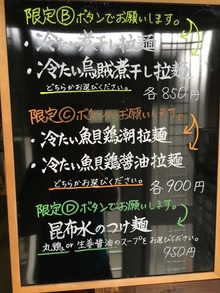 限定Ⓑボタンでお願いします。
・冷たい煮干し拉麺
・冷たい烏賊煮干し拉麺
どちらかお選びください。 各850円
限定Ⓒボタンでお願いします。
・冷たい魚貝鶏潮拉麺
・冷たい魚貝鶏醤油拉麺
どちらかお選びください。 各900円
限定Ⓓボタンでお願いします。
昆布水のつけ麺
丸鶏or生姜醤油のスープをお選びください。
950円